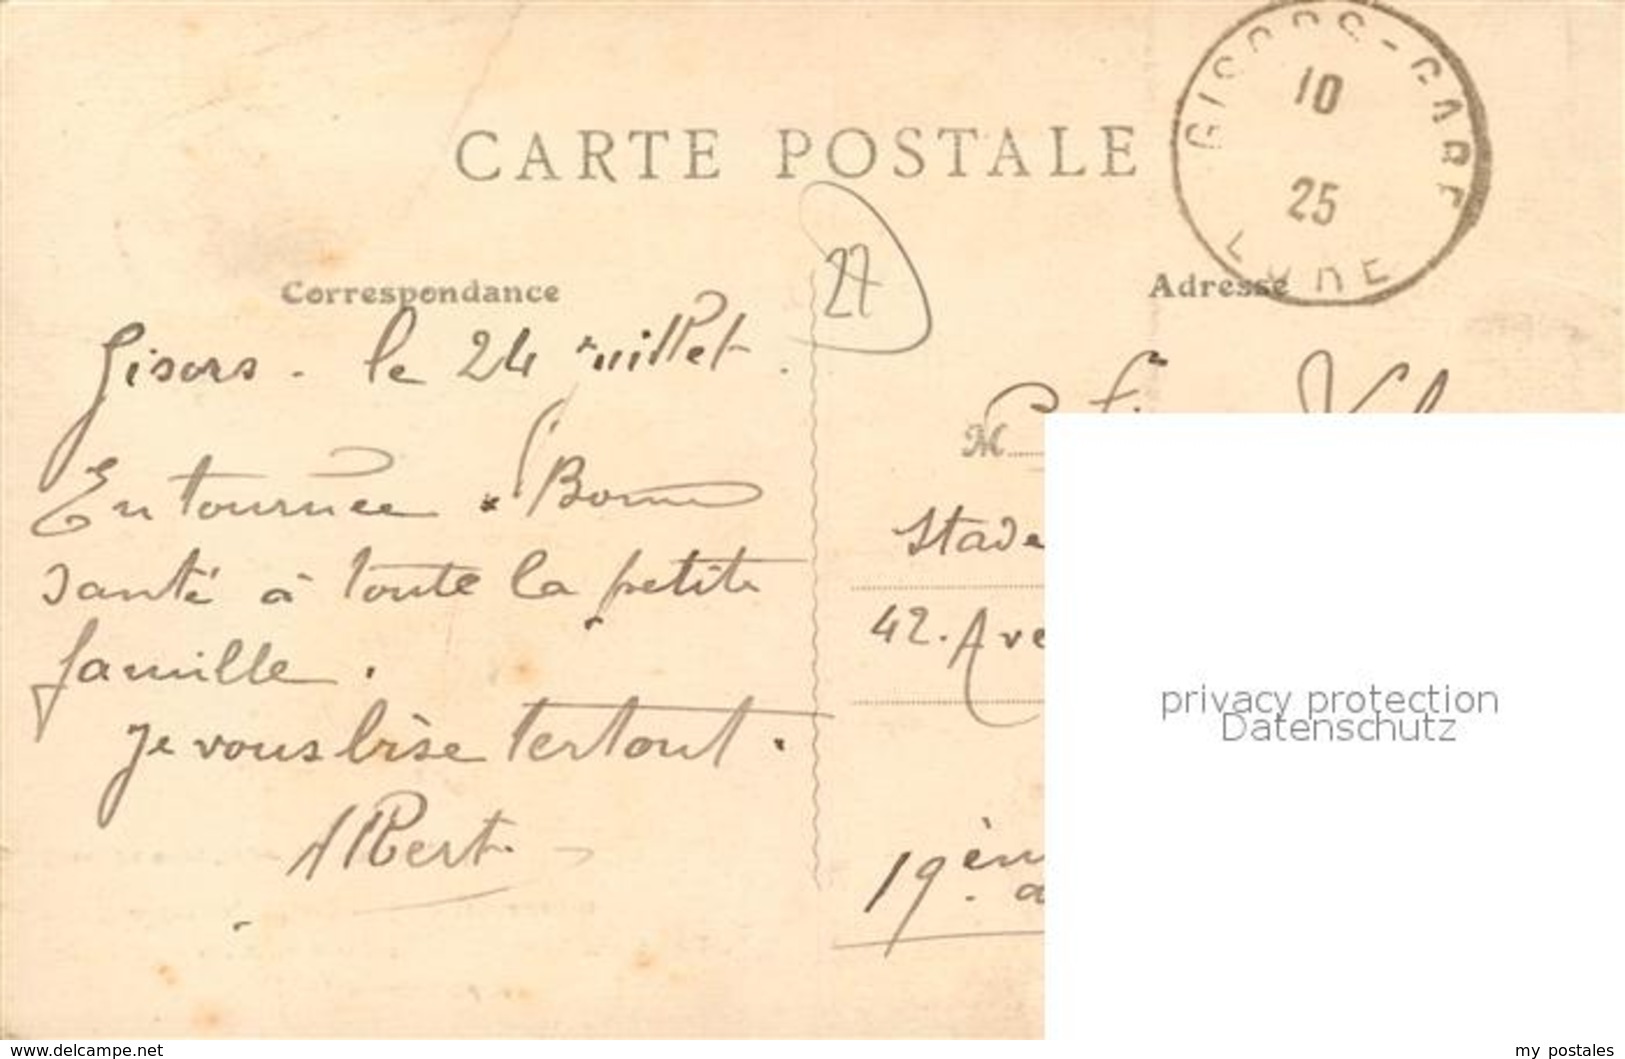 CARTE POSTALE
GISORS-GARE
10
25
EURE
27
Correspondance
Adresse
Gisors. le 24 juillet.
En tournée. Bonne
santé à toute la petite
famille.
Je vous bise tertout.
Albert.
M
Stade
42. Ave
19 èm
privacy protection
Datenschutz
www.delcampe.net
my postales